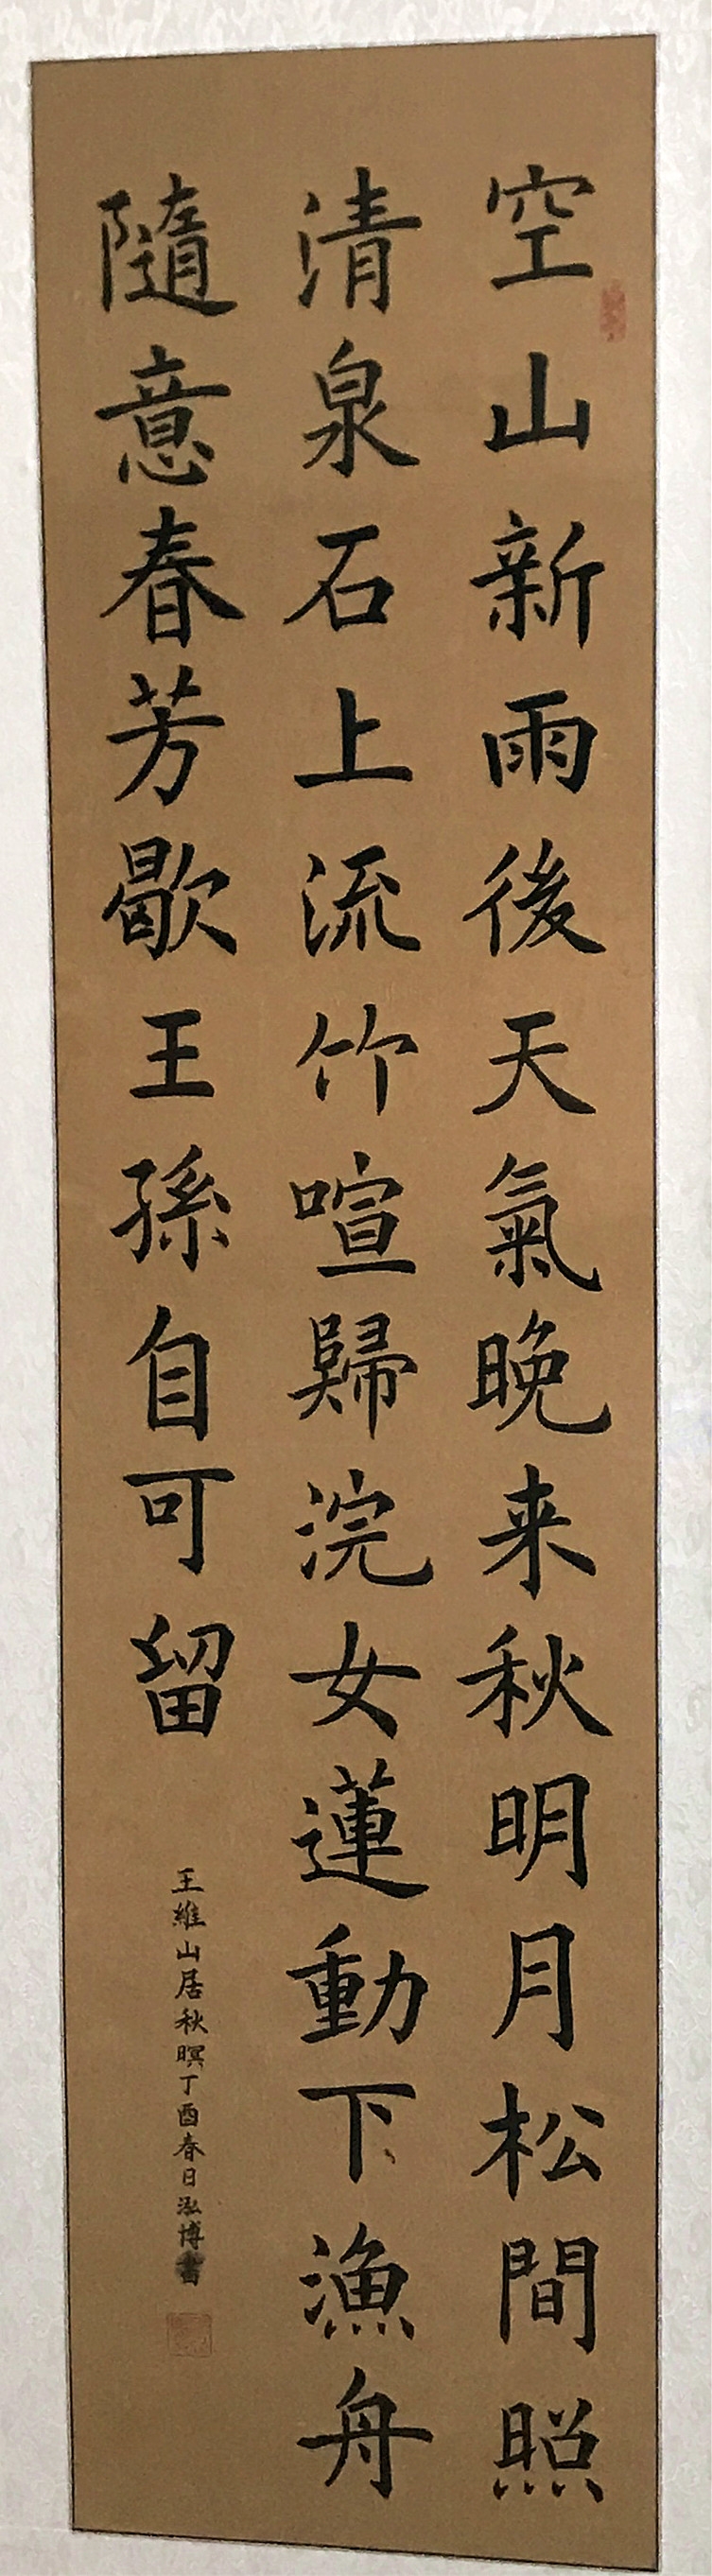 空山新雨後天氣晚来秋明月松間照
清泉石上流竹喧歸浣女蓮動下漁舟
隨意春芳歇王孫自可留
王維山居秋暝丁酉春日泓博書